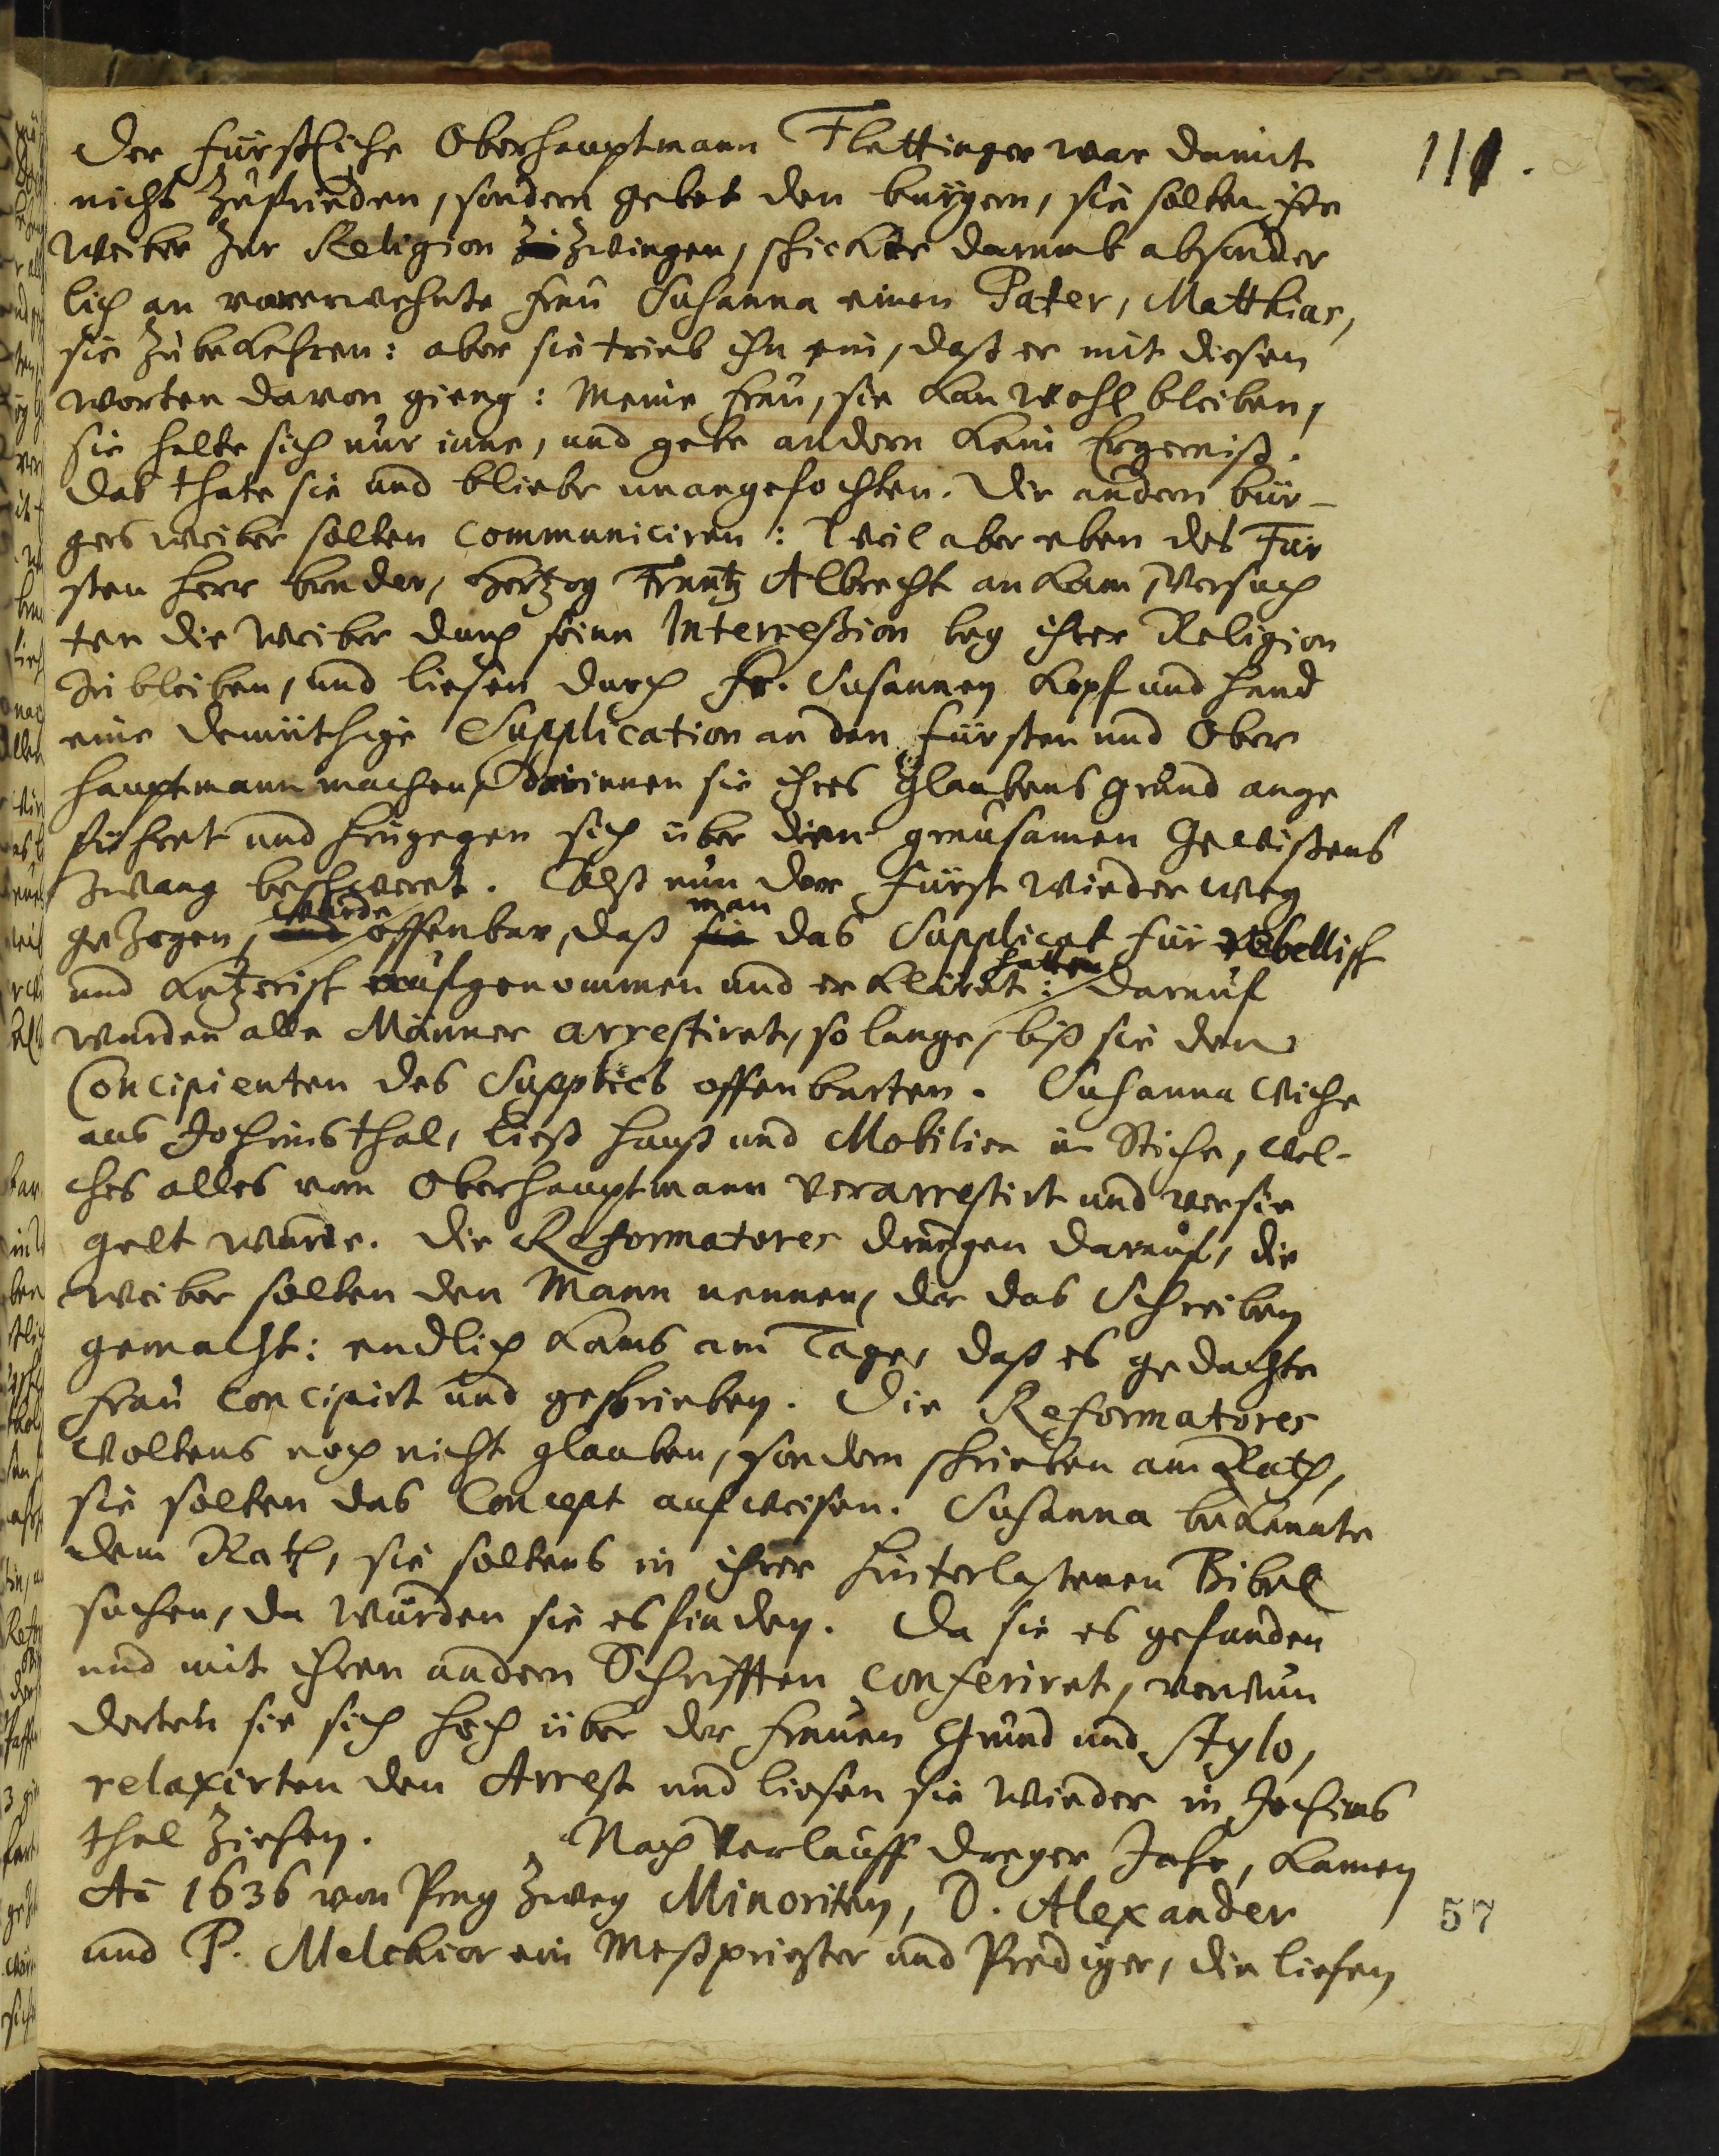 111.
Der Fürstliche Oberhauptmann Flettinger war damit
nicht zufrieden, sondern gebot den bürgern, sie solten ihre
weiber zur Religion zwingen, schickte darumb absonder
lich an vorerwehnte Frau Susanna einen Pater, Matthias,
sie zubekehren: aber sie trieb ihn ein, daß er mit diesen
worten davon gieng: Meine Frau, sie kan wohl bleiben,
sie halte sich nur inne, und gebe andern kein Ergerniß.
Das thate sie und bliebe unangefochten. Die andern bür-
gers weiber solten communiciren: Weil aber eben des Für
sten Herr bruder, Hertzog Frantz Albrecht ankam, versuch
ten die weiber durch seine Intercession bey ihrer Religion
zu bleiben, und liesen durch Fr. Susannen Kopf und Hand
eine demüthige Supplication an den Fürsten und Ober
hauptmann machen, darinnen sie ihres Glaubens grund ange
führet und hingegen sich über den grausamen Gewißens
zwang beschweret. Alß nun der Fürst wieder weg
gezogen, wurde offenbar, daß man das Supplicat für rebellisch
und ketzerisch aufgenommen und erkläret hatten: darauf
wurden alle Männer arrestiret, so lange, biß sie den
Concipienten des Supplics offenbarten. Susanna wiche
aus Jochimsthal, ließ hauß und Mobilien im Stiche, wel-
ches alles vom Oberhauptmann verarrestirt und versie
gelt wurde. Die Reformatores drungen darauf, die
weiber solten den Mann nennen, der das Schreiben
gemacht: endlich kams am Tage, daß es gedachte
Frau concipirt und geschrieben. Die Reformatores
woltens noch nicht glauben, sondern schrieben am Rath,
sie solten das Concept aufweisen. Susanna bekennte
dem Rath, sie soltens in ihrer hinterlaßenen Bibel
suchen, da würden sie es finden. Da sie es gefunden
und mit ihren andern Schrifften conferiret, verwun
derten sie sich hoch über der Frauen Grund und Stylo,
relaxirten den Arrest und liesen sie wieder in Jochims
thal ziehen. Nach Verlauff dreyer Jahr, kamen
Ao 1636 von Prag zwey Minoriten, D. Alexander
und P. Melchior ein Meßpriester und Prediger, die liesen
57